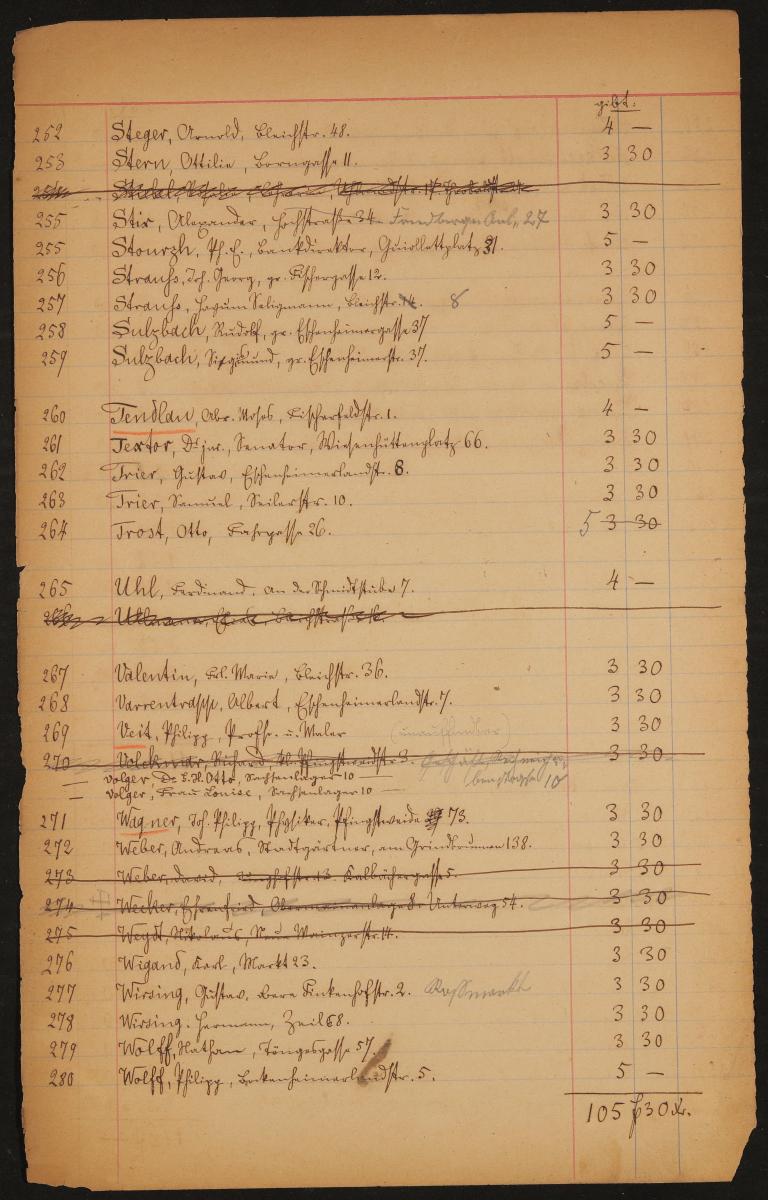 gibt:
252 Steger, Arnold, Bleichstr. 48. 4 —
253 Stern, Ottilie, Borngasse 11. 3 30
255 Stix, Alexander, Hochstraße 34. Friedberger Anl. 27 3 30
255 Stourzh, Ph. E., Bankdirektor, Guiollettplatz 31. 5 —
256 Strauss, Joh. Georg, gr. Fischergasse 12. 3 30
257 Strauss, Seligmann, Bleichstr. 8 3 30
258 Sulzbach, Rudolf, gr. Eschenheimergasse 37 5 —
259 Sulzbach, Siegmund, gr. Eschenheimerstr. 37. 5 —
260 Tendlau, Abr. Moses, Fischerfeldstr. 1. 4 —
261 Textor, Dr jur., Senator, Wiesenhüttenplatz 66. 3 30
262 Trier, Gustav, Eschenheimerlandstr. 8. 3 30
263 Trier, Samuel, Seilerstr. 10. 3 30
264 Trost, Otto, Fahrgasse 26. 5 3 30
265 Uhl, Ferdinand, an der Schmidtstube 7. 4 —
267 Valentin, Frl. Marie, Bleichstr. 36. 3 30
268 Varrentrapp, Albert, Eschenheimerlandstr. 7. 3 30
269 Veit, Philipp, Profss. u. Maler (unauffindbar) 3 30
270 Volckmar, Richard, Pfingstweidstr 3. 10 3 30
— Volger, Dr. G. H. Otto, Sachsenlager 10 —
— Volger, Frau Louise, Sachsenlager 10 —
271 Wagner, Joh. Philipp, Physiker, Pfingstweide 73. 3 30
272 Weber, Andreas, Stadtgärtner, am Grindbrunnen 138. 3 30
273 Weber, David, Kalbächergasse 5. 3 30
274 Wecker, Ehrenfried, Obermainanlage 8. Unterweg 54. 3 30
275 Weydt, Nikolaus, Neue Mainzerstr. 14. 3 30
276 Wigand, Karl, Markt 23. 3 30
277 Wirsing, Gustav, obere Finkenhofstr. 2. Rossmarkt 3 30
278 Wirsing, Hermann, Zeil 68. 3 30
279 Wolff, Nathan, Töngesgasse 57. 3 30
280 Wolff, Philipp, Bockenheimerlandstr. 5. 5 —
105 f 30 Kr.